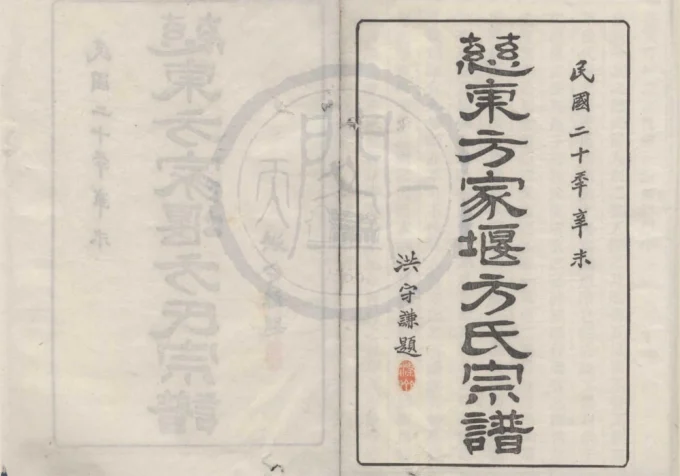 民國二十季辛未
慈東方家堰方氏宗譜
洪守謙題